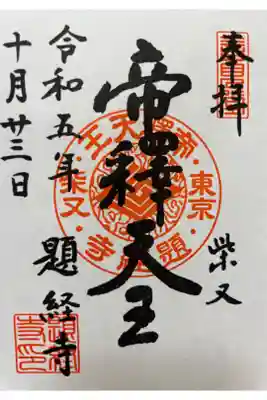 奉拝
柴又
帝釋天王
題経寺
令和五年
十月廿三日
帝釋天王・東京・題経寺・柴又・